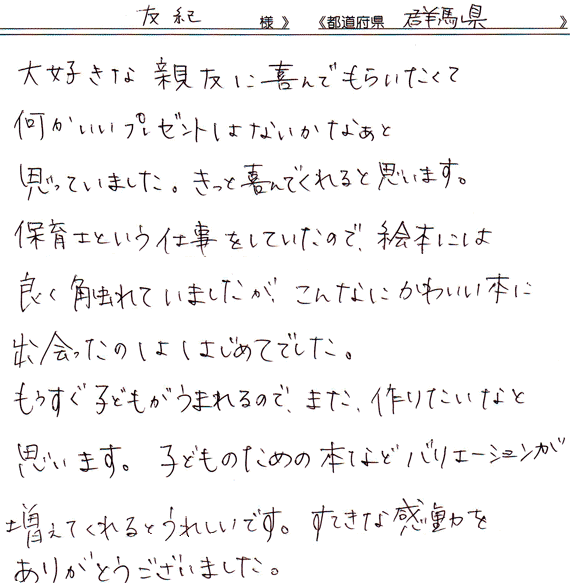 友紀 様》 《都道府県 群馬県 》
大好きな親友に喜んでもらいたくて
何かいいプレゼントはないかなぁと
思っていました。きっと喜んでくれると思います。
保育士という仕事をしていたので、絵本には
良く触れていましたが、こんなにかわいい本に
出会ったのははじめてでした。
もうすぐ子どもがうまれるので、また、作りたいなと
思います。子どものための本などバリエーションが
増えてくれるとうれしいです。すてきな感動を
ありがとうございました。